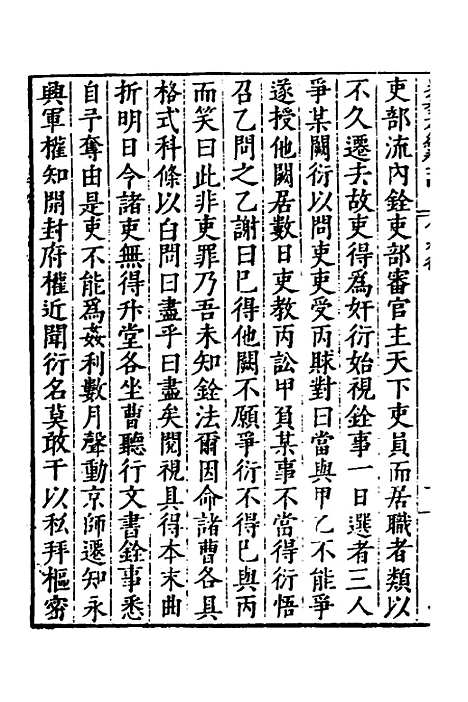 吏部流內銓吏部審官主天下吏員而居職者類以
不久遷去故吏得爲奸衍始視銓事一日選者三人
爭某闕衍以問吏吏受丙賕對曰當與甲乙不能爭
遂授他闕居數日吏教丙訟甲負某事不當得衍悟
召乙問之乙謝曰巳得他闕不願爭衍不得巳與丙
而笑曰此非吏罪乃吾未知銓法爾因命諸曹各具
格式科條以白問曰盡乎曰盡矣閱視具得本末曲
折明日令諸吏無得升堂各坐曹聽行文書銓事悉
自予奪由是吏不能爲姦利數月聲動京師遷知永
興軍權知開封府權近聞衍名莫敢干以私拜樞密